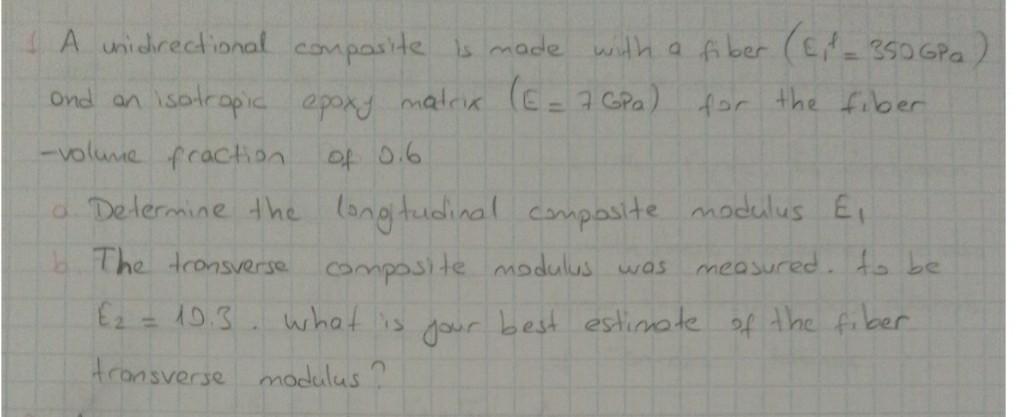 1 A unidirectional composite is made with a fiber (E₁ᶠ = 350GPa)
and an isotropic epoxy matrix (E = 7 GPa) for the fiber
-volume fraction of 0.6
a. Determine the longitudinal composite modulus E₁
b. The transverse composite modulus was measured. to be
E₂ = 10.3. What is your best estimate of the fiber
transverse modulus?